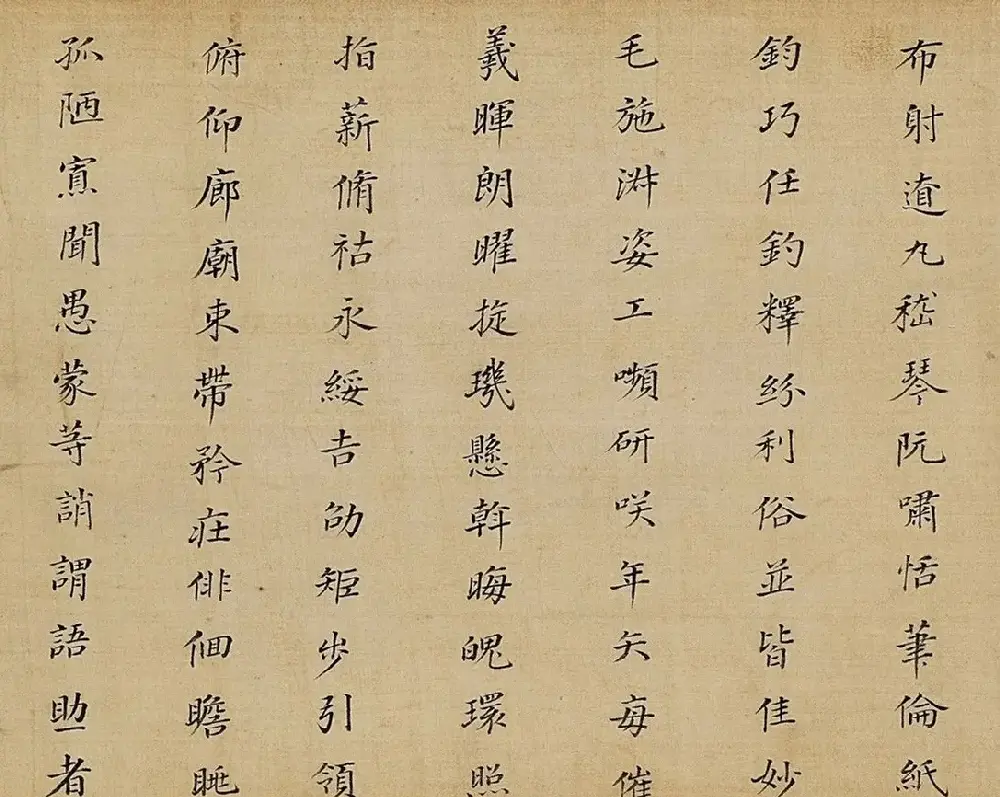 布射遼丸嵇琴阮嘯恬筆倫紙
鈞巧任釣釋紛利俗並皆佳妙
毛施淑姿工嚬研咲年矢每催
羲暉朗曜琁璣懸斡晦魄環照
指薪脩祜永綏吉劭矩步引領
俯仰廊廟束帶矜莊俳佪瞻眺
孤陋寡聞愚蒙等誚謂語助者